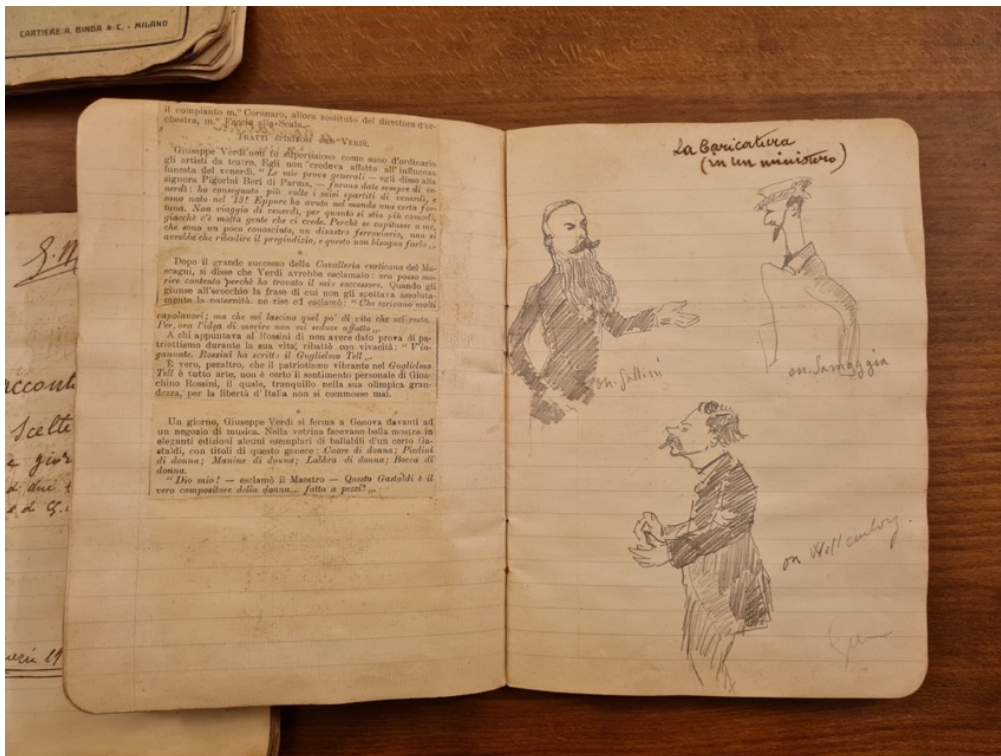 CARTIERE A. BINDA & C. - MILANO
il compianto m.° Coronaro, allora sostituto del direttore d'or-
chestra, m.° Faccio alla Scala.
TRATTI DI VERDI.
Giuseppe Verdi non fu superstizioso come sono d'ordinario
gli artisti da teatro. Egli non credeva affatto all'influenza
funesta del venerdì. " Le mie prove generali — egli disse alla
signora Pigorini Beri di Parma, — furono date sempre di ve-
nerdì: ho consegnato più volte i miei spartiti di venerdì, e
sono nato nel '13! Eppure ho avuto nel mondo una certa for-
tuna. Non viaggio di venerdì, per quanto si stia più comodi,
giacchè c'è molta gente che ci crede. Perchè se capitasse a me,
che sono un poco conosciuto, un disastro ferroviario, non si
avrebbe che ribadire il pregiudizio, e questo non bisogna farlo „.
*
Dopo il grande successo della Cavalleria rusticana del Ma-
scagni, si disse che Verdi avrebbe esclamato: ora posso mo-
rire contento perchè ho trovato il mio successore. Quando gli
giunse all'orecchio la frase di cui non gli spettava assoluta-
mente la paternità, ne rise ed esclamò: " Che scrivano molti
capolavori; ma che mi lascino quel po' di vita che mi resta.
Per ora l'idea di morire non mi seduce affatto „.
A chi appuntava al Rossini di non avere dato prova di pa-
triottismo durante la sua vita, ribattè con vivacità: " V'in-
gannate. Rossini ha scritto il Guglielmo Tell „.
È vero, peraltro, che il patriottismo vibrante nel Guglielmo
Tell è tutto arte, non è certo il sentimento personale di Gioa-
chino Rossini, il quale, tranquillo nella sua olimpica gran-
dezza, per la libertà d'Italia non si commosse mai.
*
Un giorno, Giuseppe Verdi si ferma a Genova davanti ad
un negozio di musica. Nella vetrina facevano bella mostra in
eleganti edizioni alcuni esemplari di ballabili d'un certo Ga-
staldi, con titoli di questo genere: Cuore di donna; Piedini
di donna; Manine di donna; Labbra di donna; Bocca di
donna.
" Dio mio! — esclamò il Maestro — Questo Gastaldi è il
vero compositore della donna... fatta a pezzi! „.
La Caricatura
(in un ministero)
on. Gallini
on. Samoggia
on Wollemborg.
acconti
Scelte